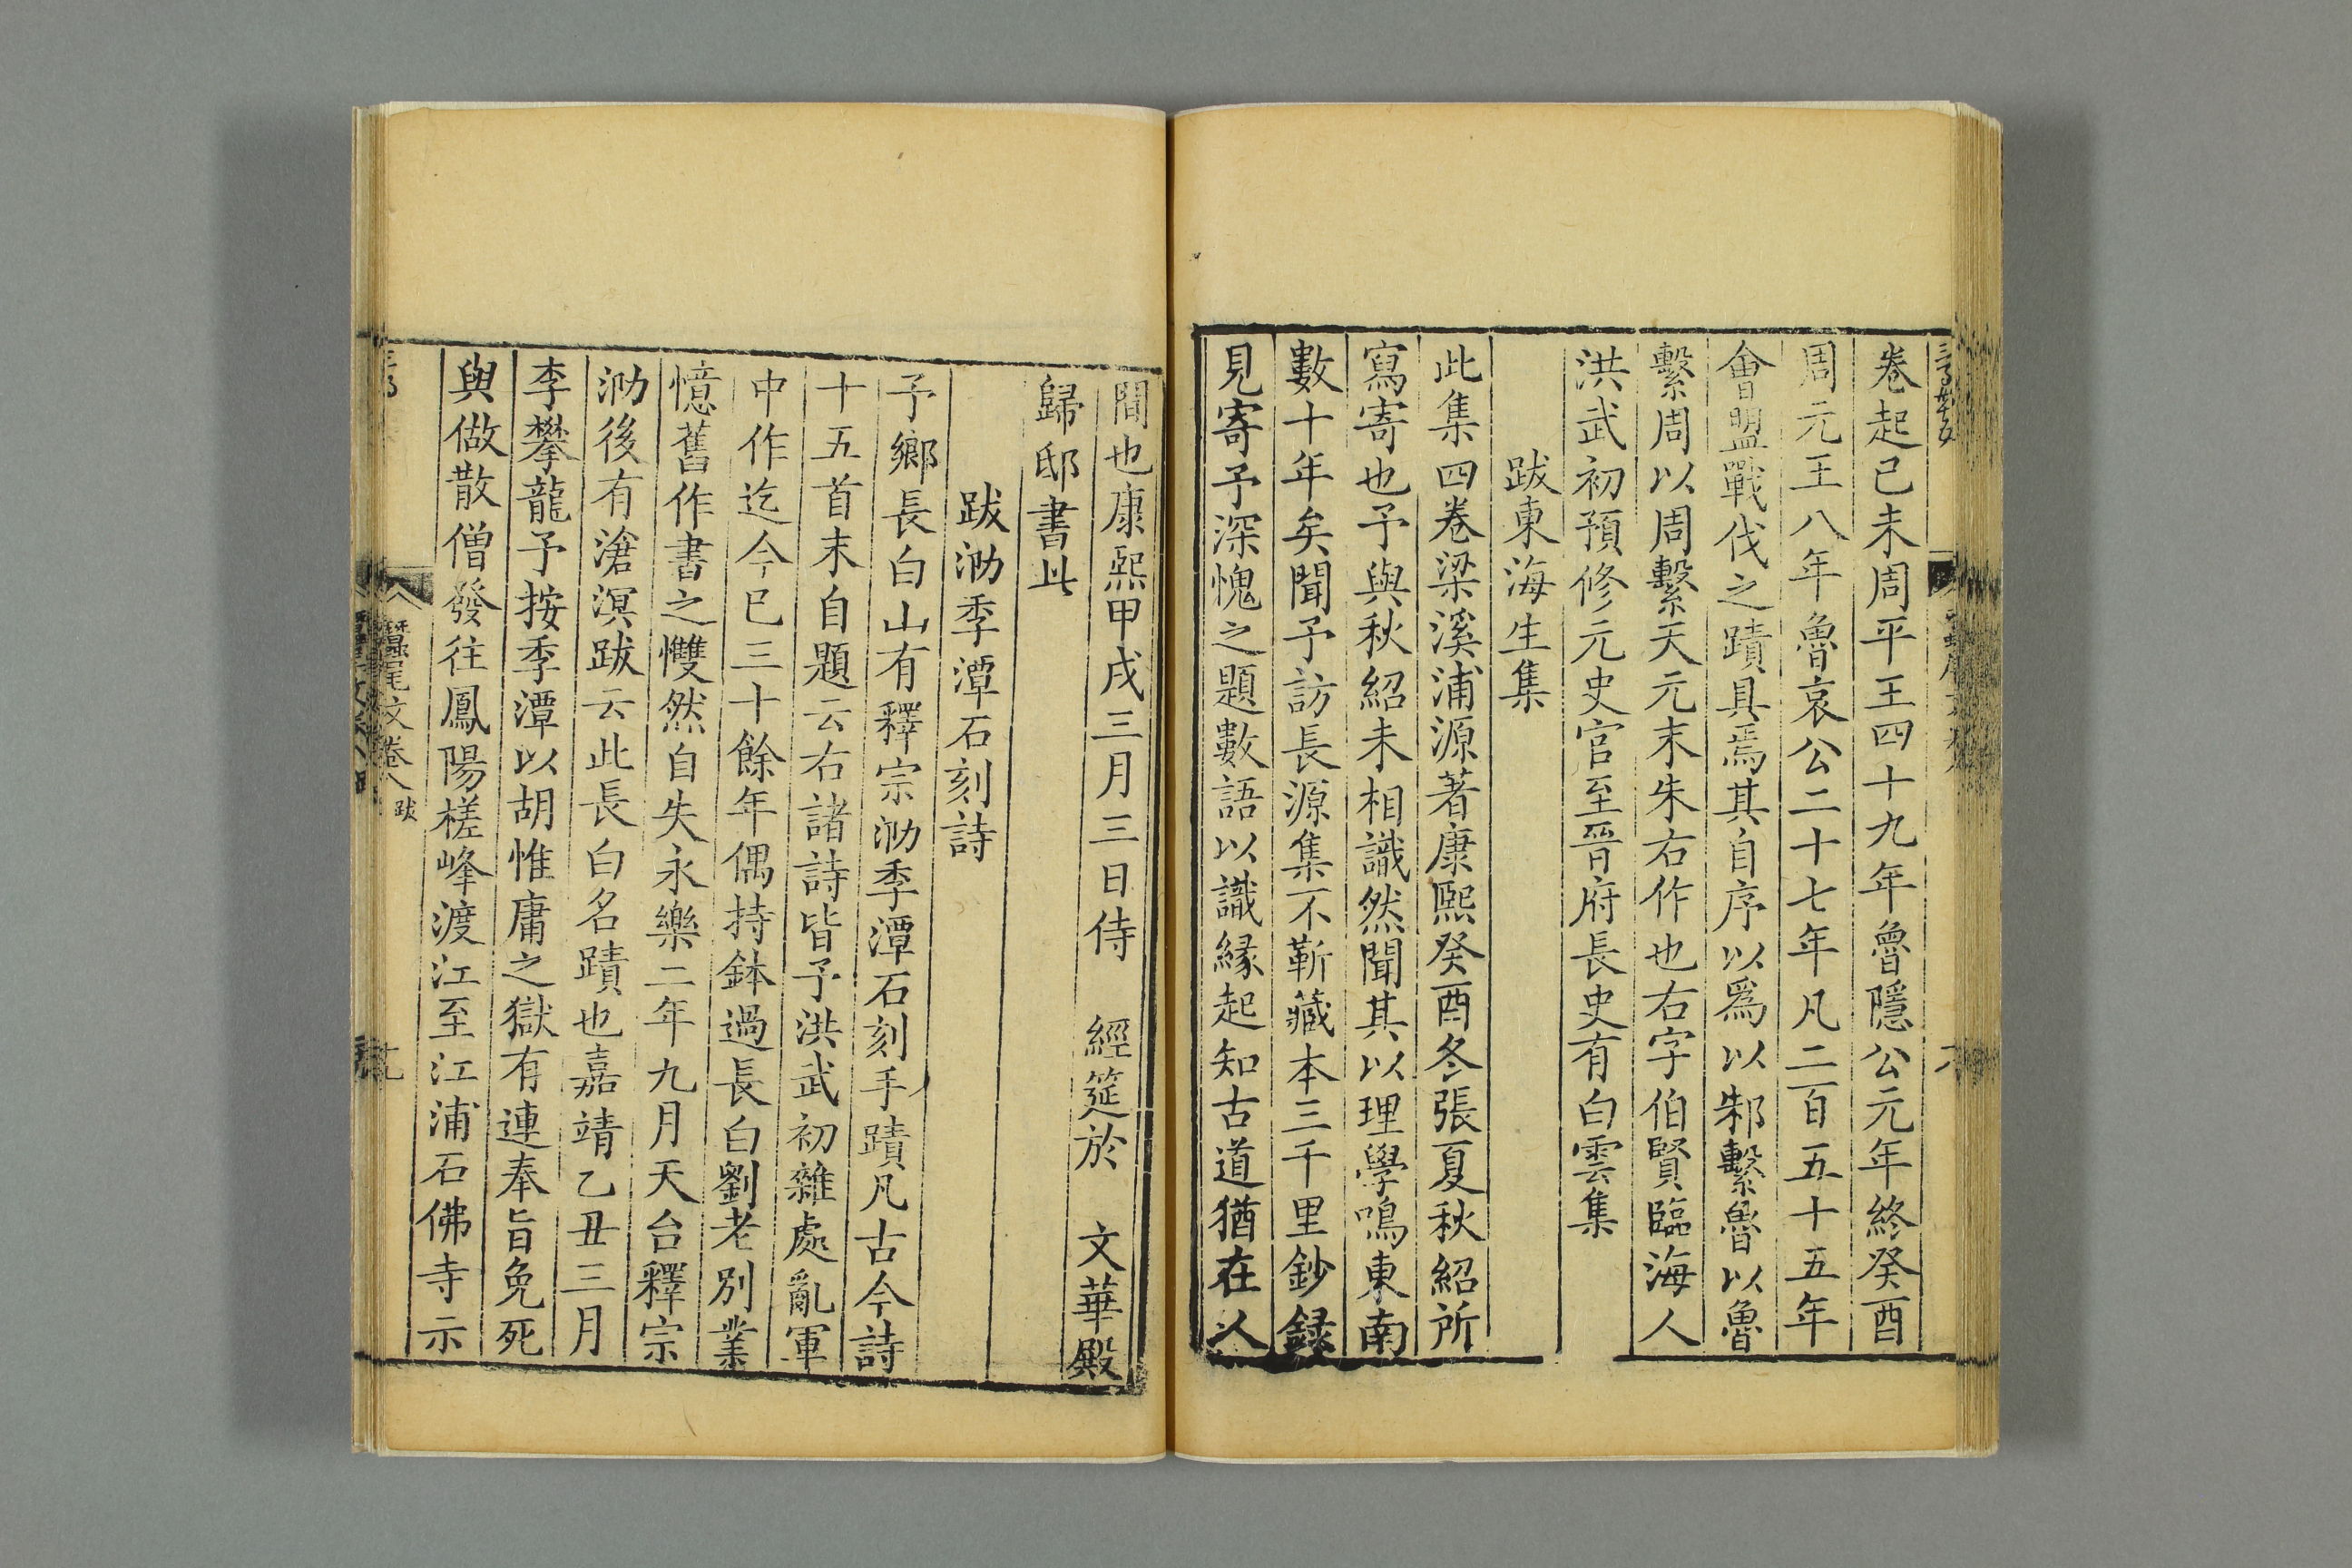 卷起己未周平王四十九年魯隱公元年終癸酉
周元王八年魯哀公二十七年凡二百五十五年
會盟戰伐之蹟具焉其自序以爲以邾繫魯以魯
繫周以周繫天元末朱右作也右字伯賢臨海人
洪武初預修元史官至晉府長史有白雲集
跋東海生集
此集四卷梁溪浦源著康熙癸酉冬張夏秋紹所
寫寄也予與秋紹未相識然聞其以理學鳴東南
數十年矣聞予訪長源集不靳藏本三千里鈔録
見寄予深愧之題數語以識緣起知古道猶在人
間也康熙甲戌三月三日侍 經筵於 文華殿
歸邸書此
跋泐季潭石刻詩
予鄉長白山有釋宗泐季潭石刻手蹟凡古今詩
十五首末自題云右諸詩皆予洪武初雜處亂軍
中作迄今已三十餘年偶持鉢過長白劉老別業
憶舊作書之戄然自失永樂二年九月天台釋宗
泐後有滄溟跋云此長白名蹟也嘉靖乙丑三月
李攀龍予按季潭以胡惟庸之獄有連奉旨免死
與做散僧發往鳳陽槎峰渡江至江浦石佛寺示
蠶尾文卷八 跋